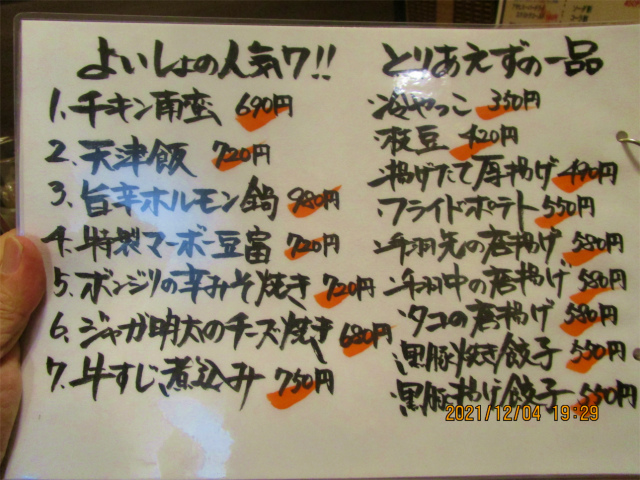 よいしょの人気7!!
1. チキン南蛮 690円
2. 天津飯 720円
3. 旨辛ホルモン鍋 980円
4. 特製マーボー豆富 720円
5. ボンジリの辛みそ焼き 720円
6. ジャガ明太のチーズ焼き 680円
7. 牛すじ煮込み 750円
とりあえずの一品
冷やっこ 350円
枝豆 420円
揚げたて厚揚げ 490円
フライドポテト 550円
手羽先の唐揚げ 580円
手羽中の唐揚げ 580円
タコの唐揚げ 580円
黒豚焼き餃子 550円
黒豚揚げ餃子 550円
2021/12/04 19:29